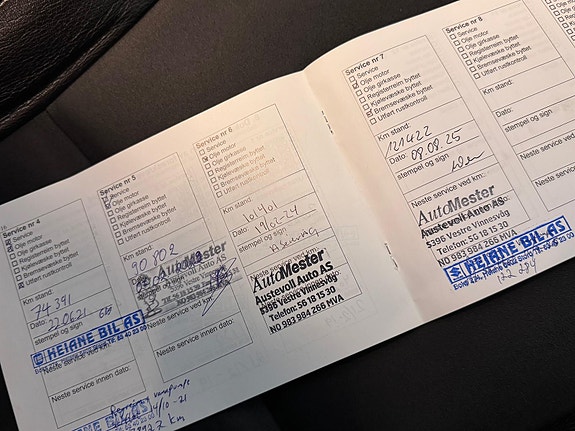 Service nr 4
Service
Olje motor
Olje girkasse
Registerreim byttet
Kjølevæske byttet
Bremsevæske byttet
Utført rustkontroll
Km stand:
74 391
Dato:
stempel og sign
HEIANE BIL AS
Neste service ved km:
Neste service innen dato:
Service nr 5
Service
Olje motor
Olje girkasse
Registerreim byttet
Kjølevæske byttet
Bremsevæske byttet
Utført rustkontroll
Km stand:
90 802
AutoMester
Austevoll Auto AS
Neste service ved km:
Neste service innen dato:
4/10-21
km
Service nr 6
Service
Olje motor
Olje girkasse
Registerreim byttet
Kjølevæske byttet
Bremsevæske byttet
Utført rustkontroll
Km stand:
101 401
Dato:
19/02-24
stempel og sign
Neste service ved km:
AutoMester
Austevoll Auto AS
5396 Vestre Vinnesvåg
Telefon: 56 18 15 30
NO 983 984 266 MVA
Service nr 7
Service
Olje motor
Olje girkasse
Registerreim byttet
Kjølevæske byttet
Bremsevæske byttet
Utført rustkontroll
Km stand:
121422
Dato:
08.08.25
stempel og sign
Neste service ved km:
AutoMester
Austevoll Auto AS
5396 Vestre Vinnesvåg
Telefon: 56 18 15 30
NO 983 984 266 MVA
HEIANE BIL AS
122 284
Service nr 8
Service
Olje motor
Olje girkasse
Registerreim byttet
Kjølevæske
Bremsevæske
Utført rustkontroll
Km stand:
Dato:
stempel og sign
Neste service